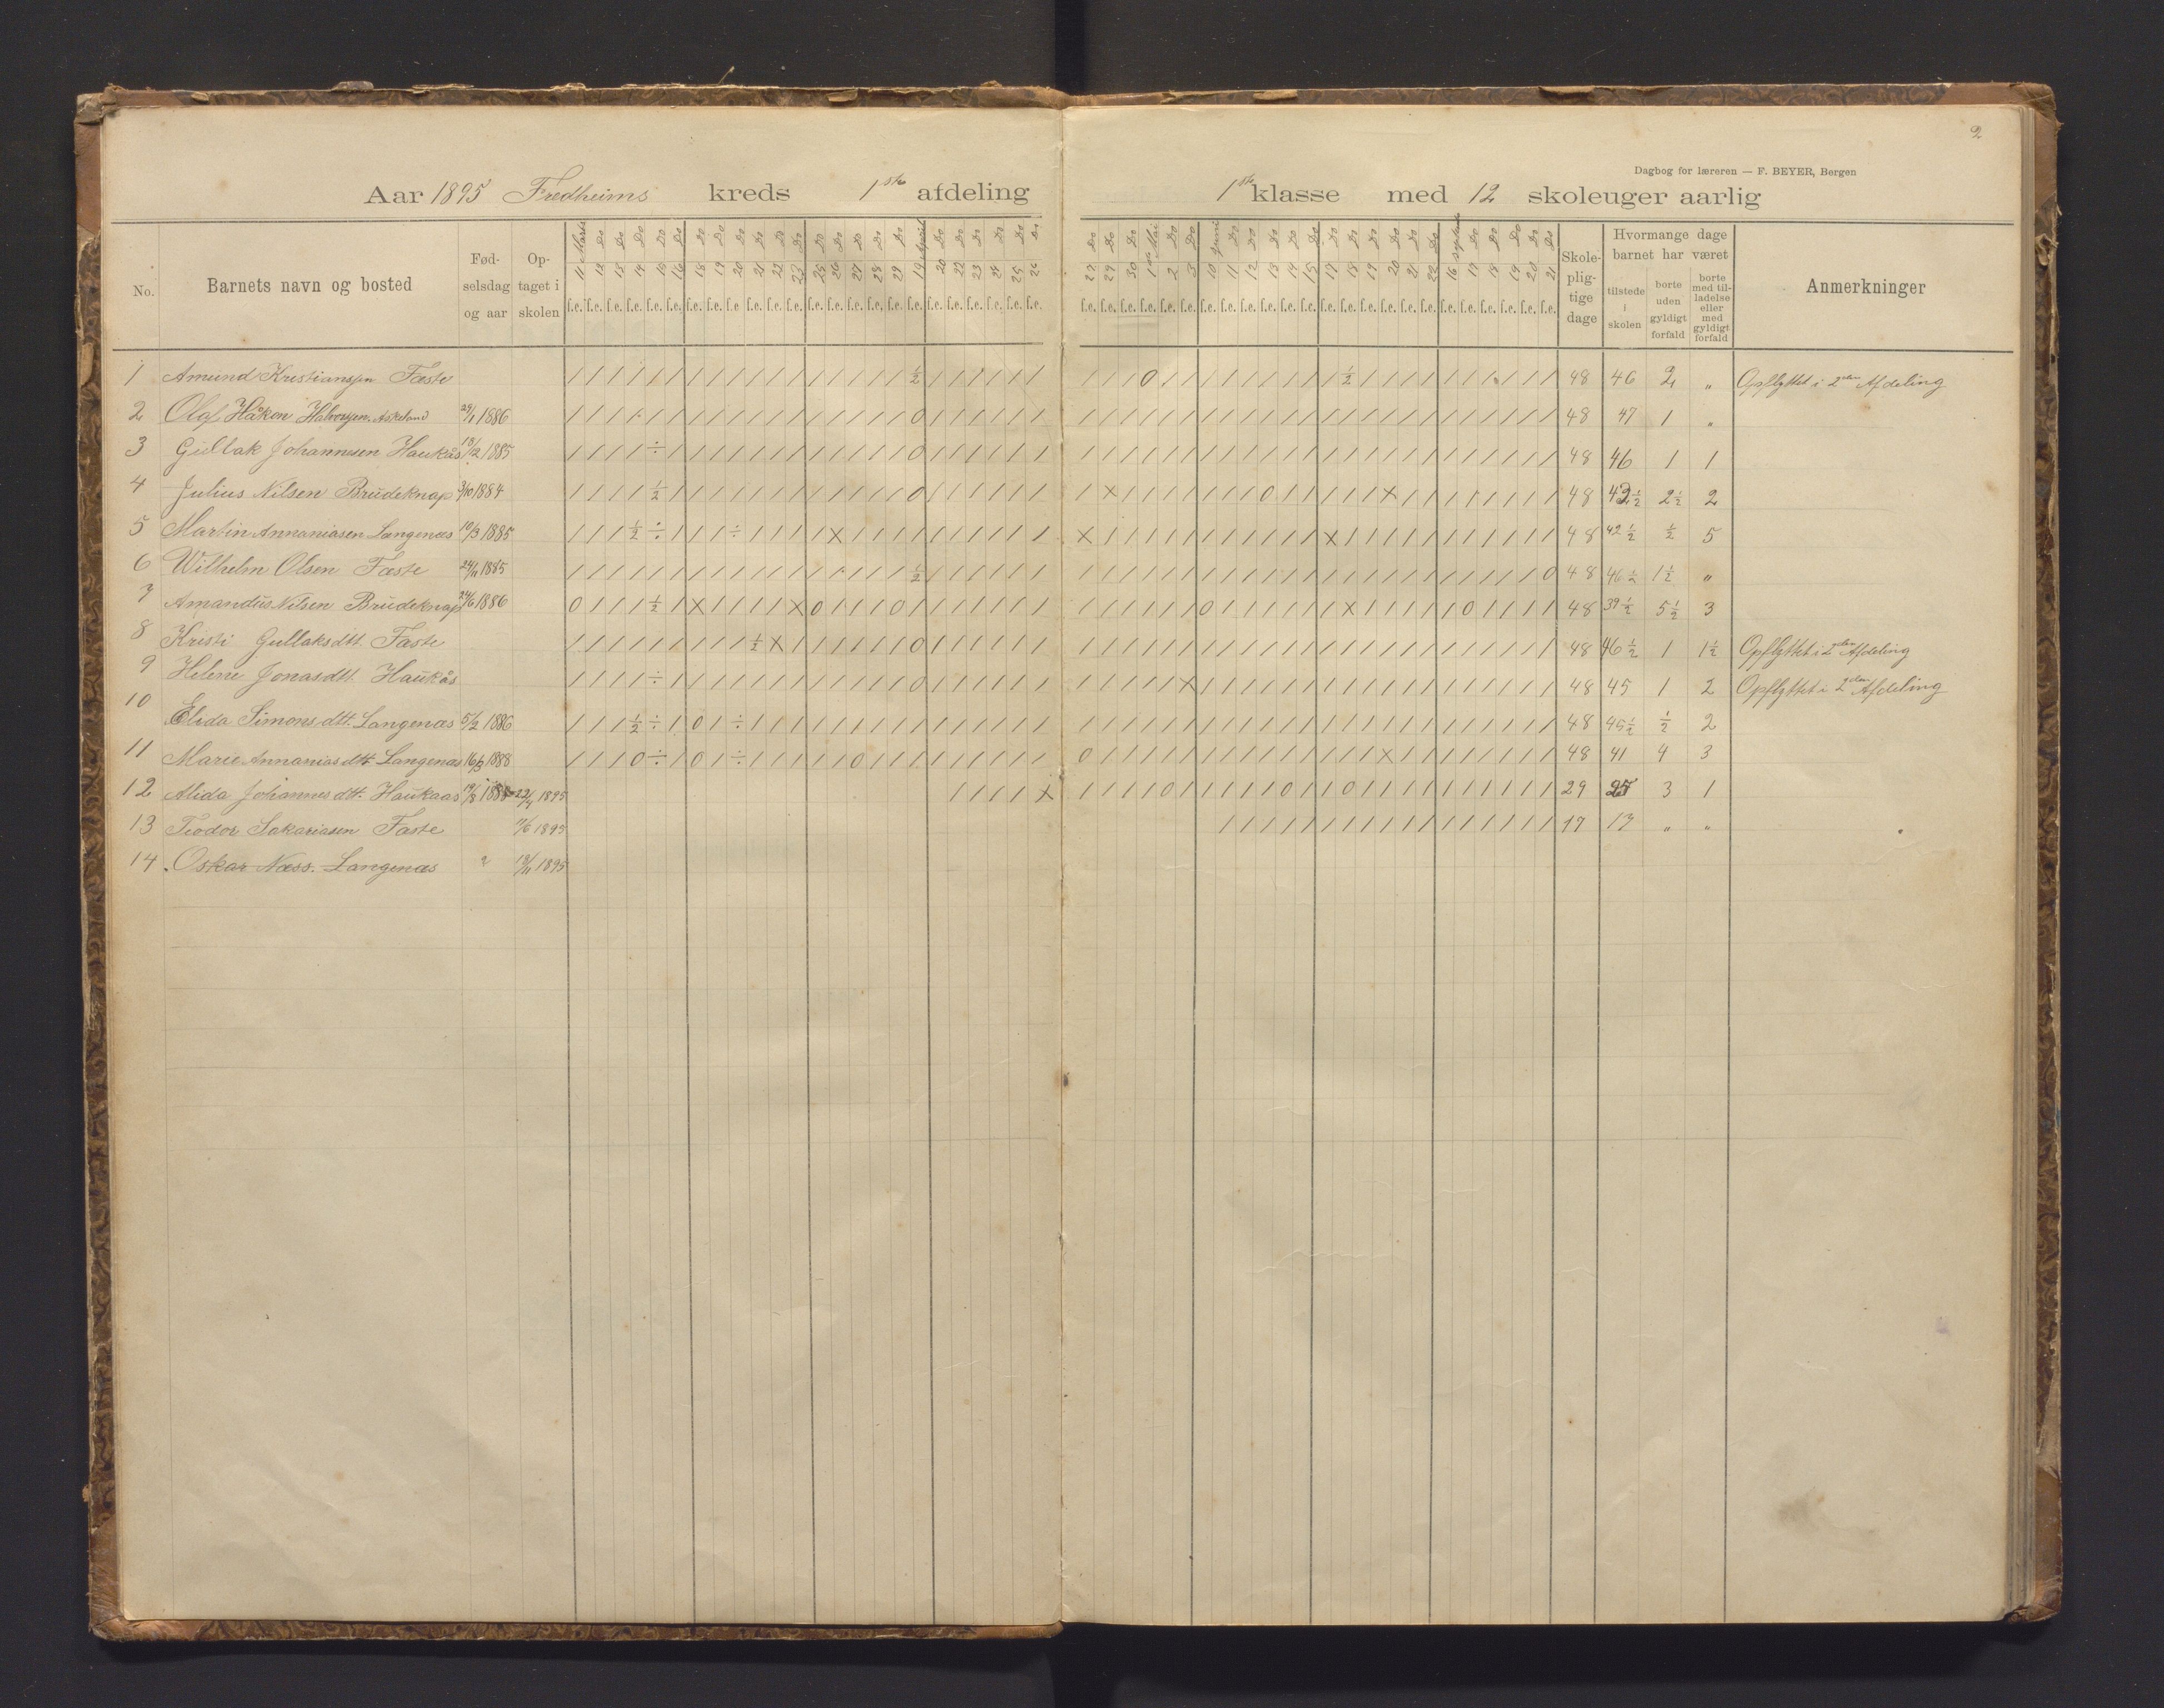 2
Dagbog for læreren — F. BEYER, Bergen
Aar 1895 Fredheims kreds 1ste afdeling 1ste klasse med 12 skoleuger aarlig
No. Barnets navn og bosted Fødselsdag og aar Optaget i skolen Skolepligtige dage Hvormange dage barnet har været tilstede i skolen borte uden gyldigt forfald borte med tilladelse eller med gyldigt forfald Anmerkninger
11 Marts 12 13 14 15 16 18 19 20 21 22 23 25 26 27 28 29 19 April 20 22 23 24 25 26
27 29 30 1ste Mai 2 3 10 Juni 11 12 13 14 15 17 18 19 20 21 22 16 septr 17 18 19 20 21
1 Amund Kristiansen Fæste 48 46 2 „ Opflyttet i 2den Afdeling
2 Olaf Håkon Halvorsen Askeland 29/1 1886 48 47 1 „
3 Gullak Johannesen Haukås 18/2 1885 48 46 1 1
4 Julius Nilsen Brudeknap 3/10 1884 48 43½ 2½ 2
5 Martin Annaniasen Langenæs 10/3 1885 48 42½ ½ 5
6 Wilhelm Olsen Fæste 24/11 1885 48 46½ 1½ „
7 Amandus Nilsen Brudeknap 24/6 1886 48 39½ 5½ 3
8 Kristi Gullaksdtt. Fæste 48 46½ 1 1½ Opflyttet i 2den Afdeling
9 Helene Jonasdtt. Haukås 48 45 1 2 Opflyttet i 2den Afdeling
10 Elida Simonsdtt. Langenæs 5/2 1886 48 45½ ½ 2
11 Marie Annaniasdtt. Langenæs 16/3 1888 48 41 4 3
12 Alida Johannesdtt. Haukaas 19/8 1888 22/4 1895 29 25 3 1
13 Teodor Sakariasen Fæste 11/6 1895 17 17 „ „
14 Oskar Næss. Langenæs ? 18/11 1895